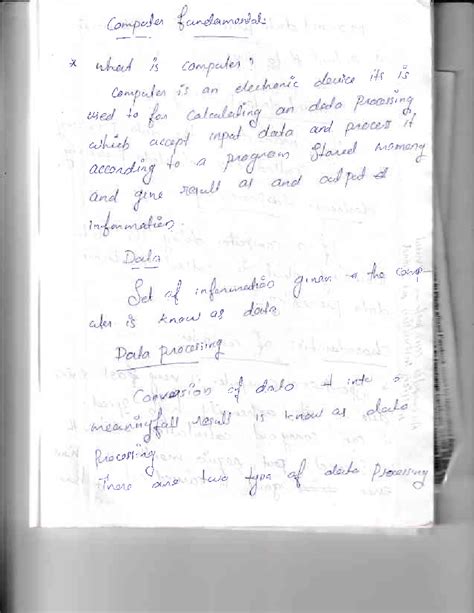 Computer fundamental:
* what is computer?
Computer is an electronic device its is
used to for calculating an data processing
which accept input data and process it
according to a program stored memory
and give result as and output of
information.
Data
Set of information given to the comp-
uter is know as data
Data processing
Conversion of data into a
meaningfull result is know as data
Processing
There are two type of data Processing